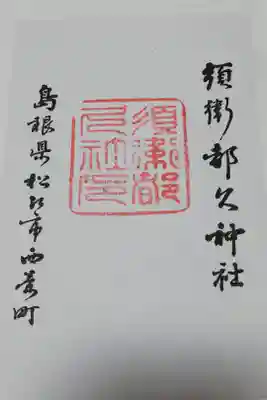 須衛都久神社
須衛都
島根県松江市西茶町